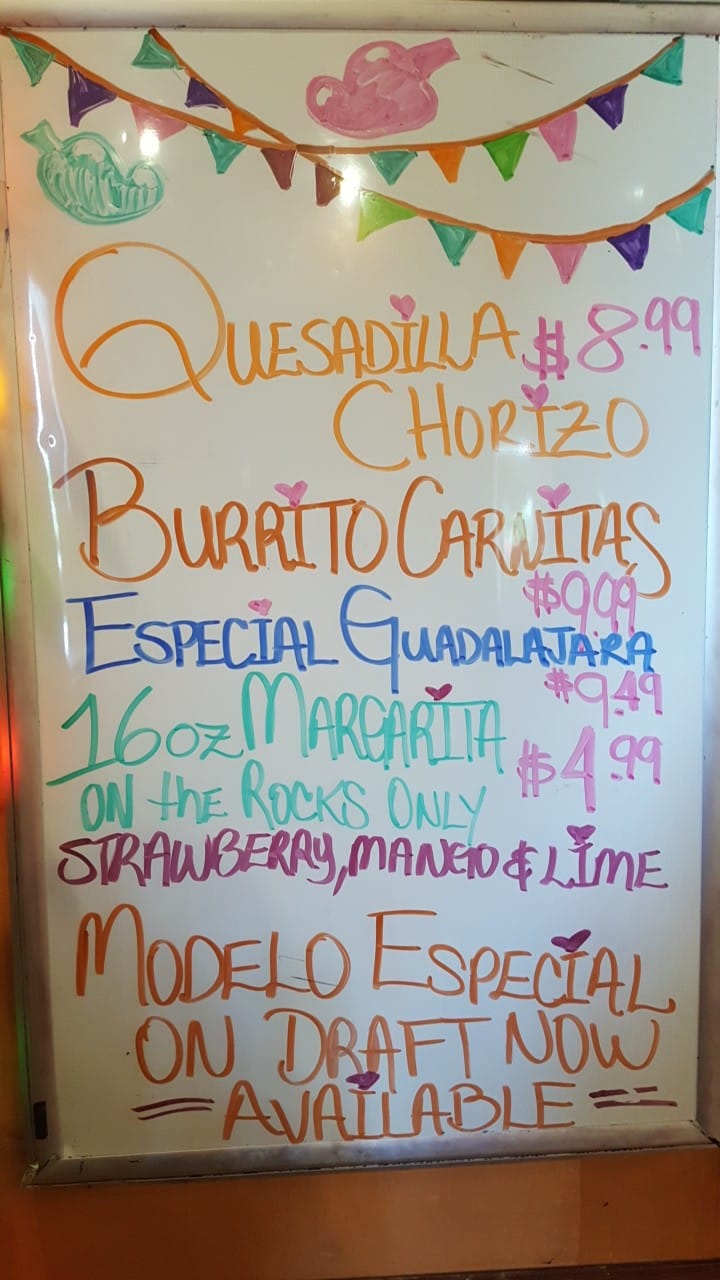 QUESADILLA $8.99
CHORIZO
BURRITO CARNITAS
$9.99
ESPECIAL GUADALAJARA
$9.49
16oz MARGARITA $4.99
ON the ROCKS ONLY
STRAWBERRY, MANGO & LIME
MODELO ESPECIAL
ON DRAFT NOW
AVAILABLE